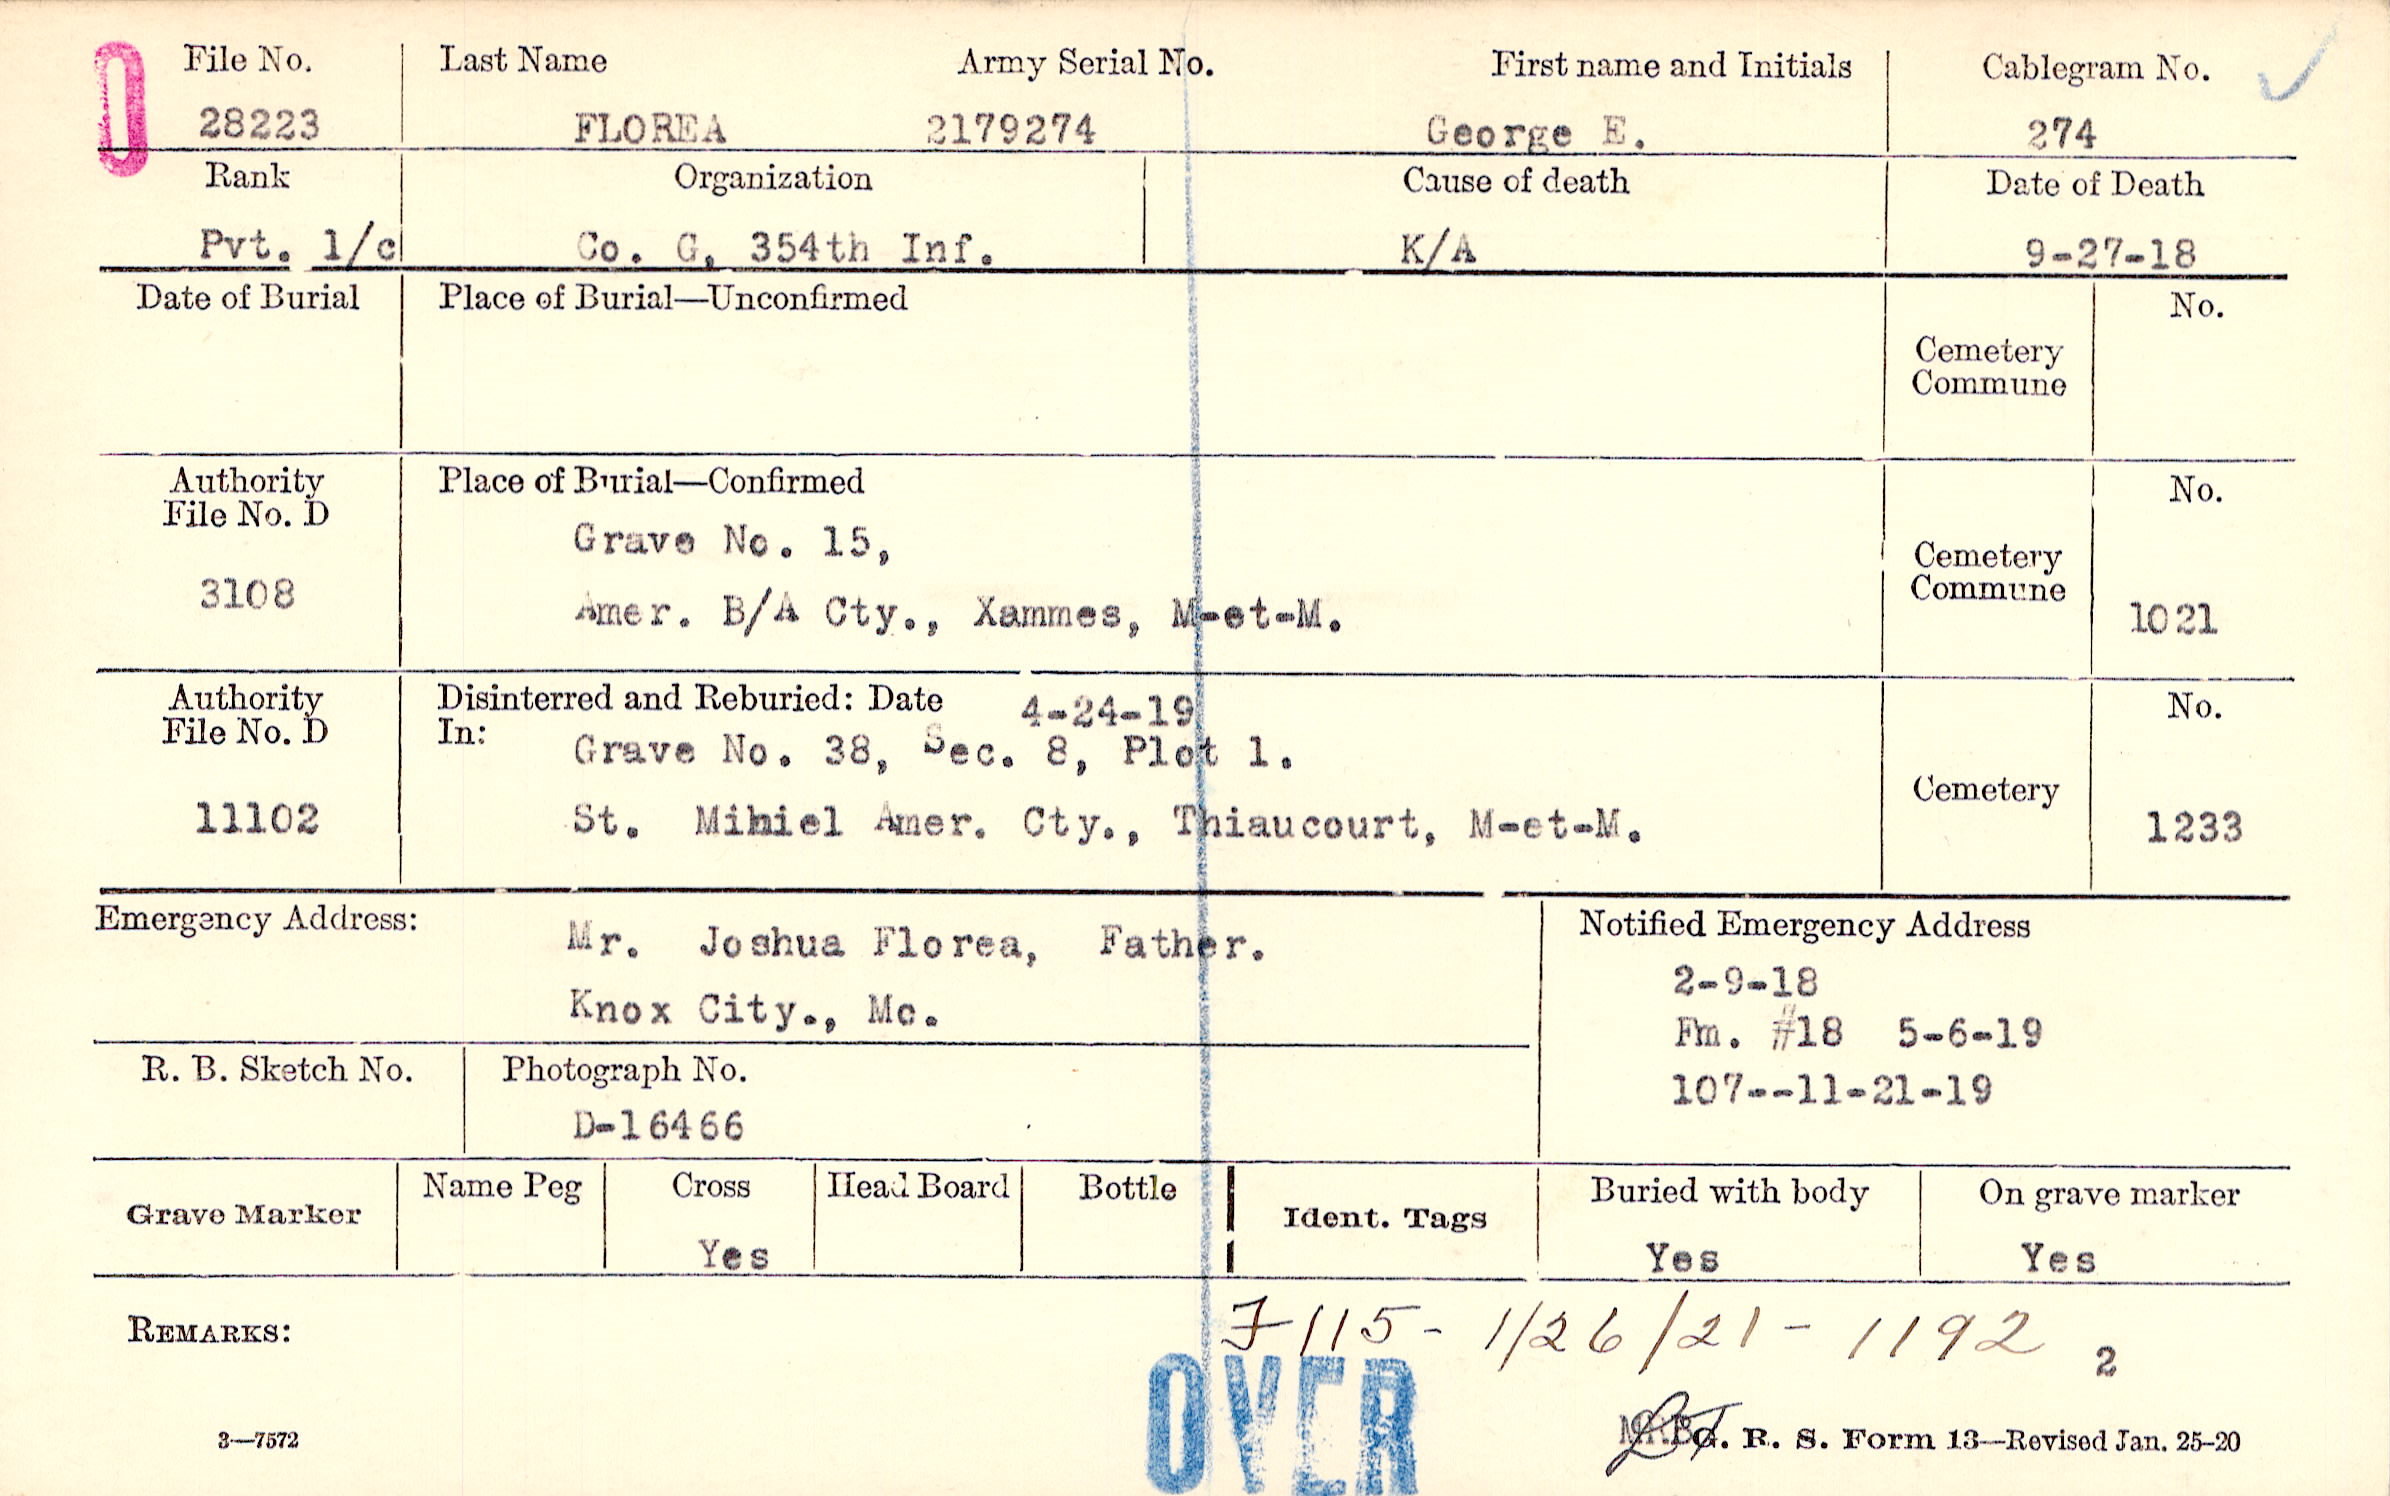 O
File No. Last Name Army Serial No. First name and Initials Cablegram No.
28223 FLOREA 2179274 George E. 274
Rank Organization Cause of death Date of Death
Pvt. 1/c Co. G, 354th Inf. K/A 9-27-18
Date of Burial Place of Burial—Unconfirmed No.
Cemetery
Commune
Authority Place of Burial—Confirmed No.
File No. D
Grave No. 15,
Cemetery
Commune
3108 Amer. B/A Cty., Xammes, M-et-M. 1021
Authority Disinterred and Reburied: Date 4-24-19 No.
File No. D In:
Grave No. 38, Sec. 8, Plot 1.
Cemetery
11102 St. Mihiel Amer. Cty., Thiaucourt, M-et-M. 1233
Emergency Address: Mr. Joshua Florea, Father.
Knox City., Mo.
Notified Emergency Address
2-9-18
Fm. #18 5-6-19
107--11-21-19
R. B. Sketch No. Photograph No.
D-16466
Grave Marker Name Peg Cross Head Board Bottle Ident. Tags Buried with body On grave marker
Yes Yes Yes
REMARKS: F115- 1/26/21- 1192 2
OVER
3—7572 G. R. S. Form 13—Revised Jan. 25-20